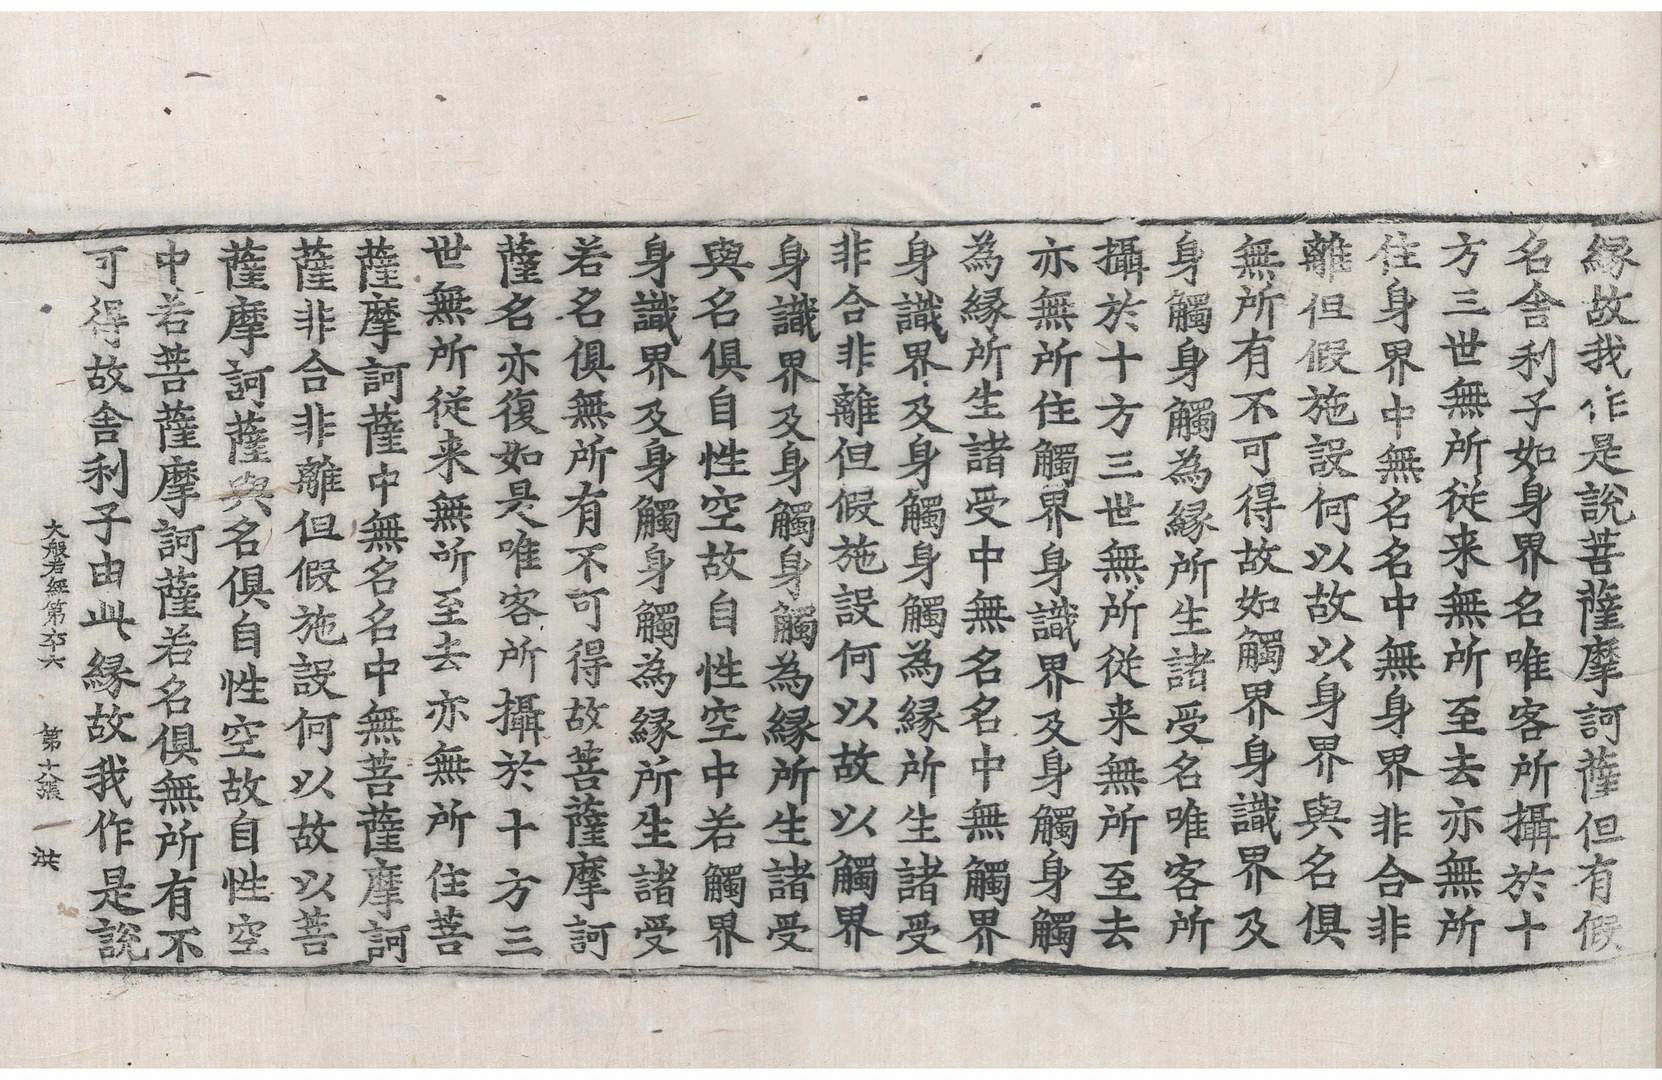 縁故我作是說菩薩摩訶薩但有假
名舍利子如身界名唯客所攝於十
方三世無所従来無所至去亦無所
住身界中無名名中無身界非合非
離但假施設何以故以身界與名俱
無所有不可得故如觸界身識界及
身觸身觸為縁所生諸受名唯客所
攝於十方三世無所従来無所至去
亦無所住觸界身識界及身觸身觸
為縁所生諸受中無名名中無觸界
身識界及身觸身觸為縁所生諸受
非合非離但假施設何以故以觸界
身識界及身觸身觸為縁所生諸受
與名俱自性空故自性空中若觸界
身識界及身觸身觸為縁所生諸受
若名俱無所有不可得故菩薩摩訶
薩名亦復如是唯客所攝於十方三
世無所従来無所至去亦無所住菩
薩摩訶薩中無名名中無菩薩摩訶
薩非合非離但假施設何以故以菩
薩摩訶薩與名俱自性空故自性空
中若菩薩摩訶薩若名俱無所有不
可得故舍利子由此縁故我作是說
大般若經第六十六 第十八張 洪